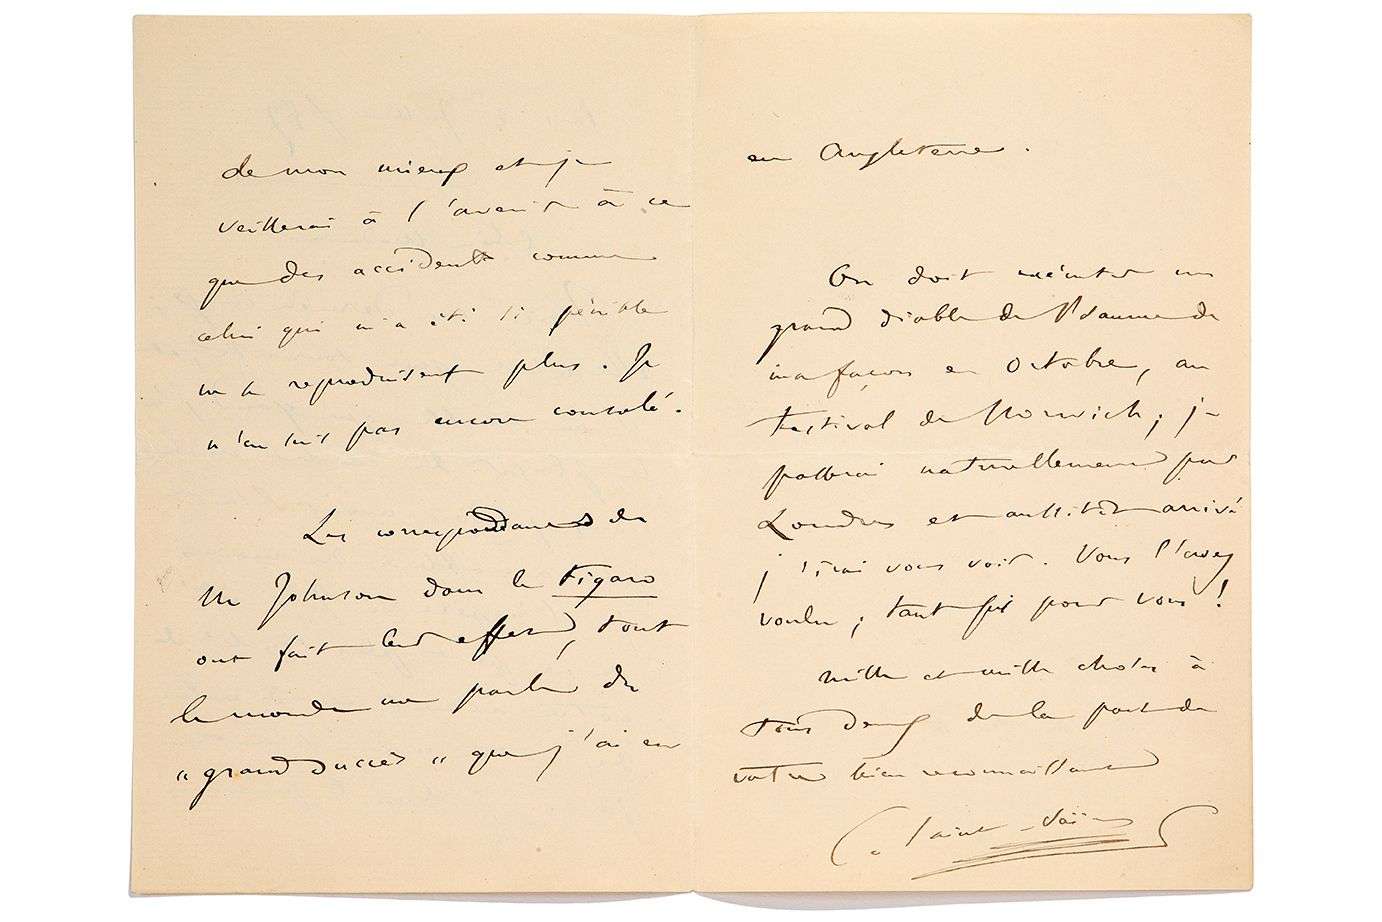 de mon mieux et je
veillerai à l'avenir à ce
que des accidents comme
celui qui m'a été si pénible
ne se reproduisent plus. Je
n'en suis pas encore consolé.
Les correspondances de
Mr Johnson dans le Figaro
ont fait leur effet, tout
le monde me parle du
"grand succès" que j'ai eu
en Angleterre.
On doit exécuter un
grand diable de Psaume de
ma façon en Octobre, au
festival de Norwich; je
passerai naturellement par
Londres et aussitôt arrivé
j'irai vous voir. Vous l'avez
voulu; tant pis pour vous!
Mille et mille choses à
tous deux de la part de
votre bien reconnaissant
C. Saint-Saëns